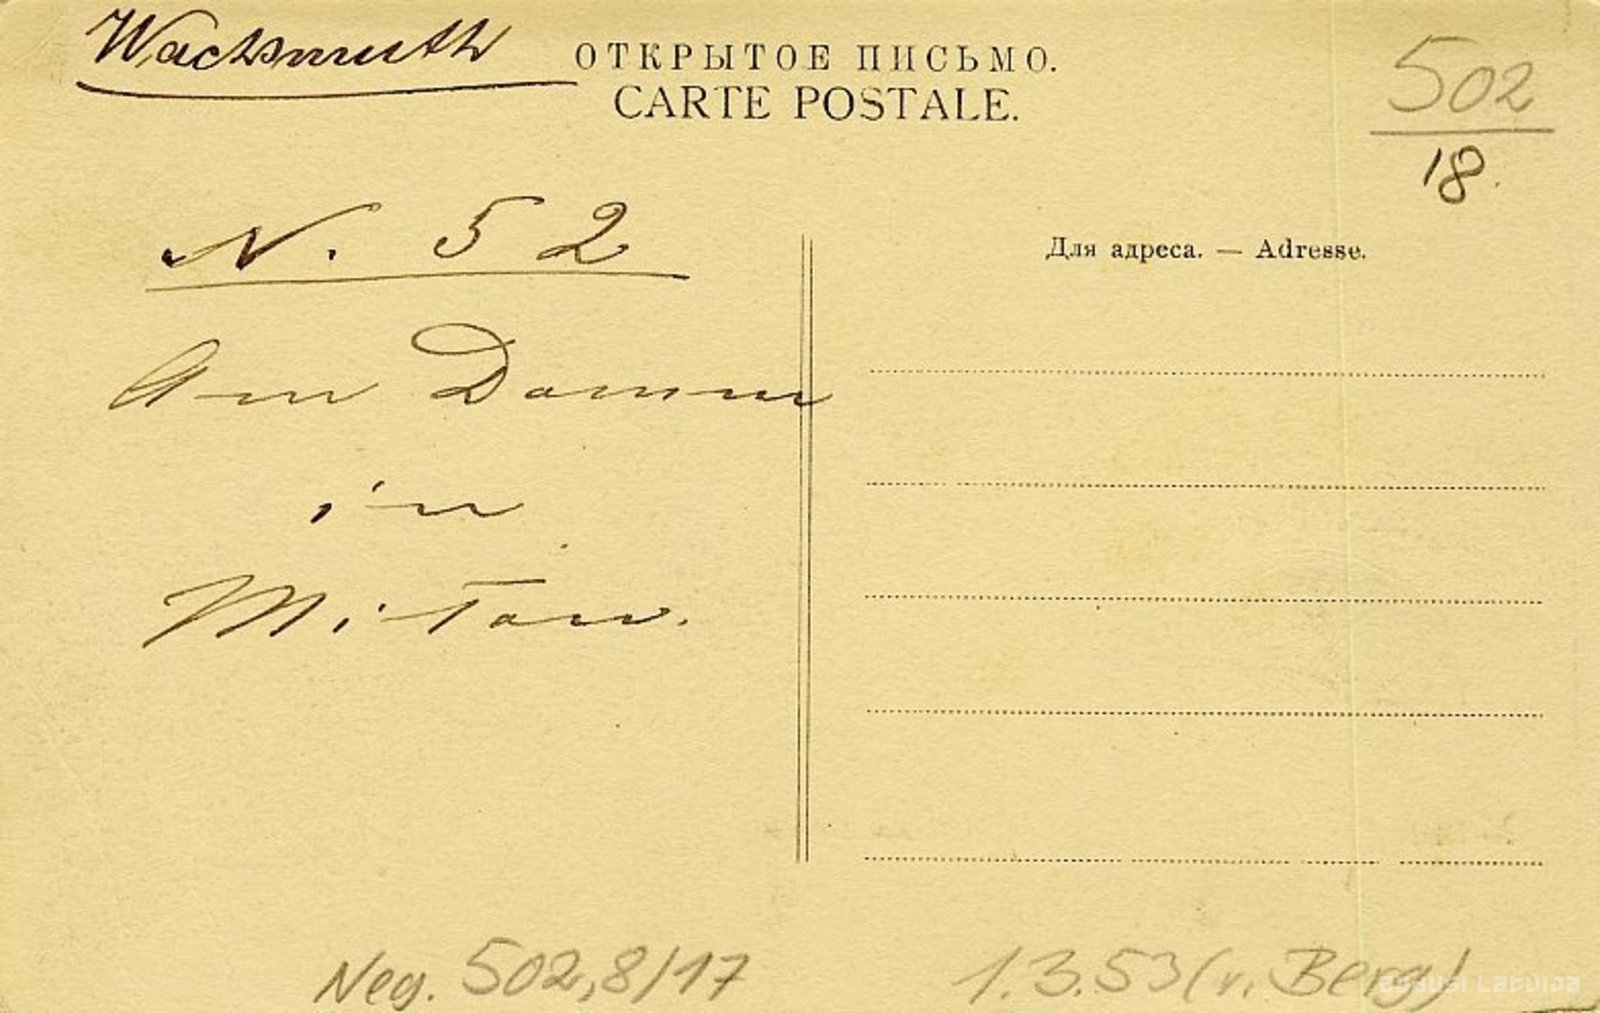 Wachsmuth
ОТКРЫТОЕ ПИСЬМО.
CARTE POSTALE.
502
18.
N. 52
Для адреса. — Adresse.
Am Damm
in
Mitau.
Neg. 502,8/17
1.3.53 (v. Berg)
ZUDUSI LATVIJA